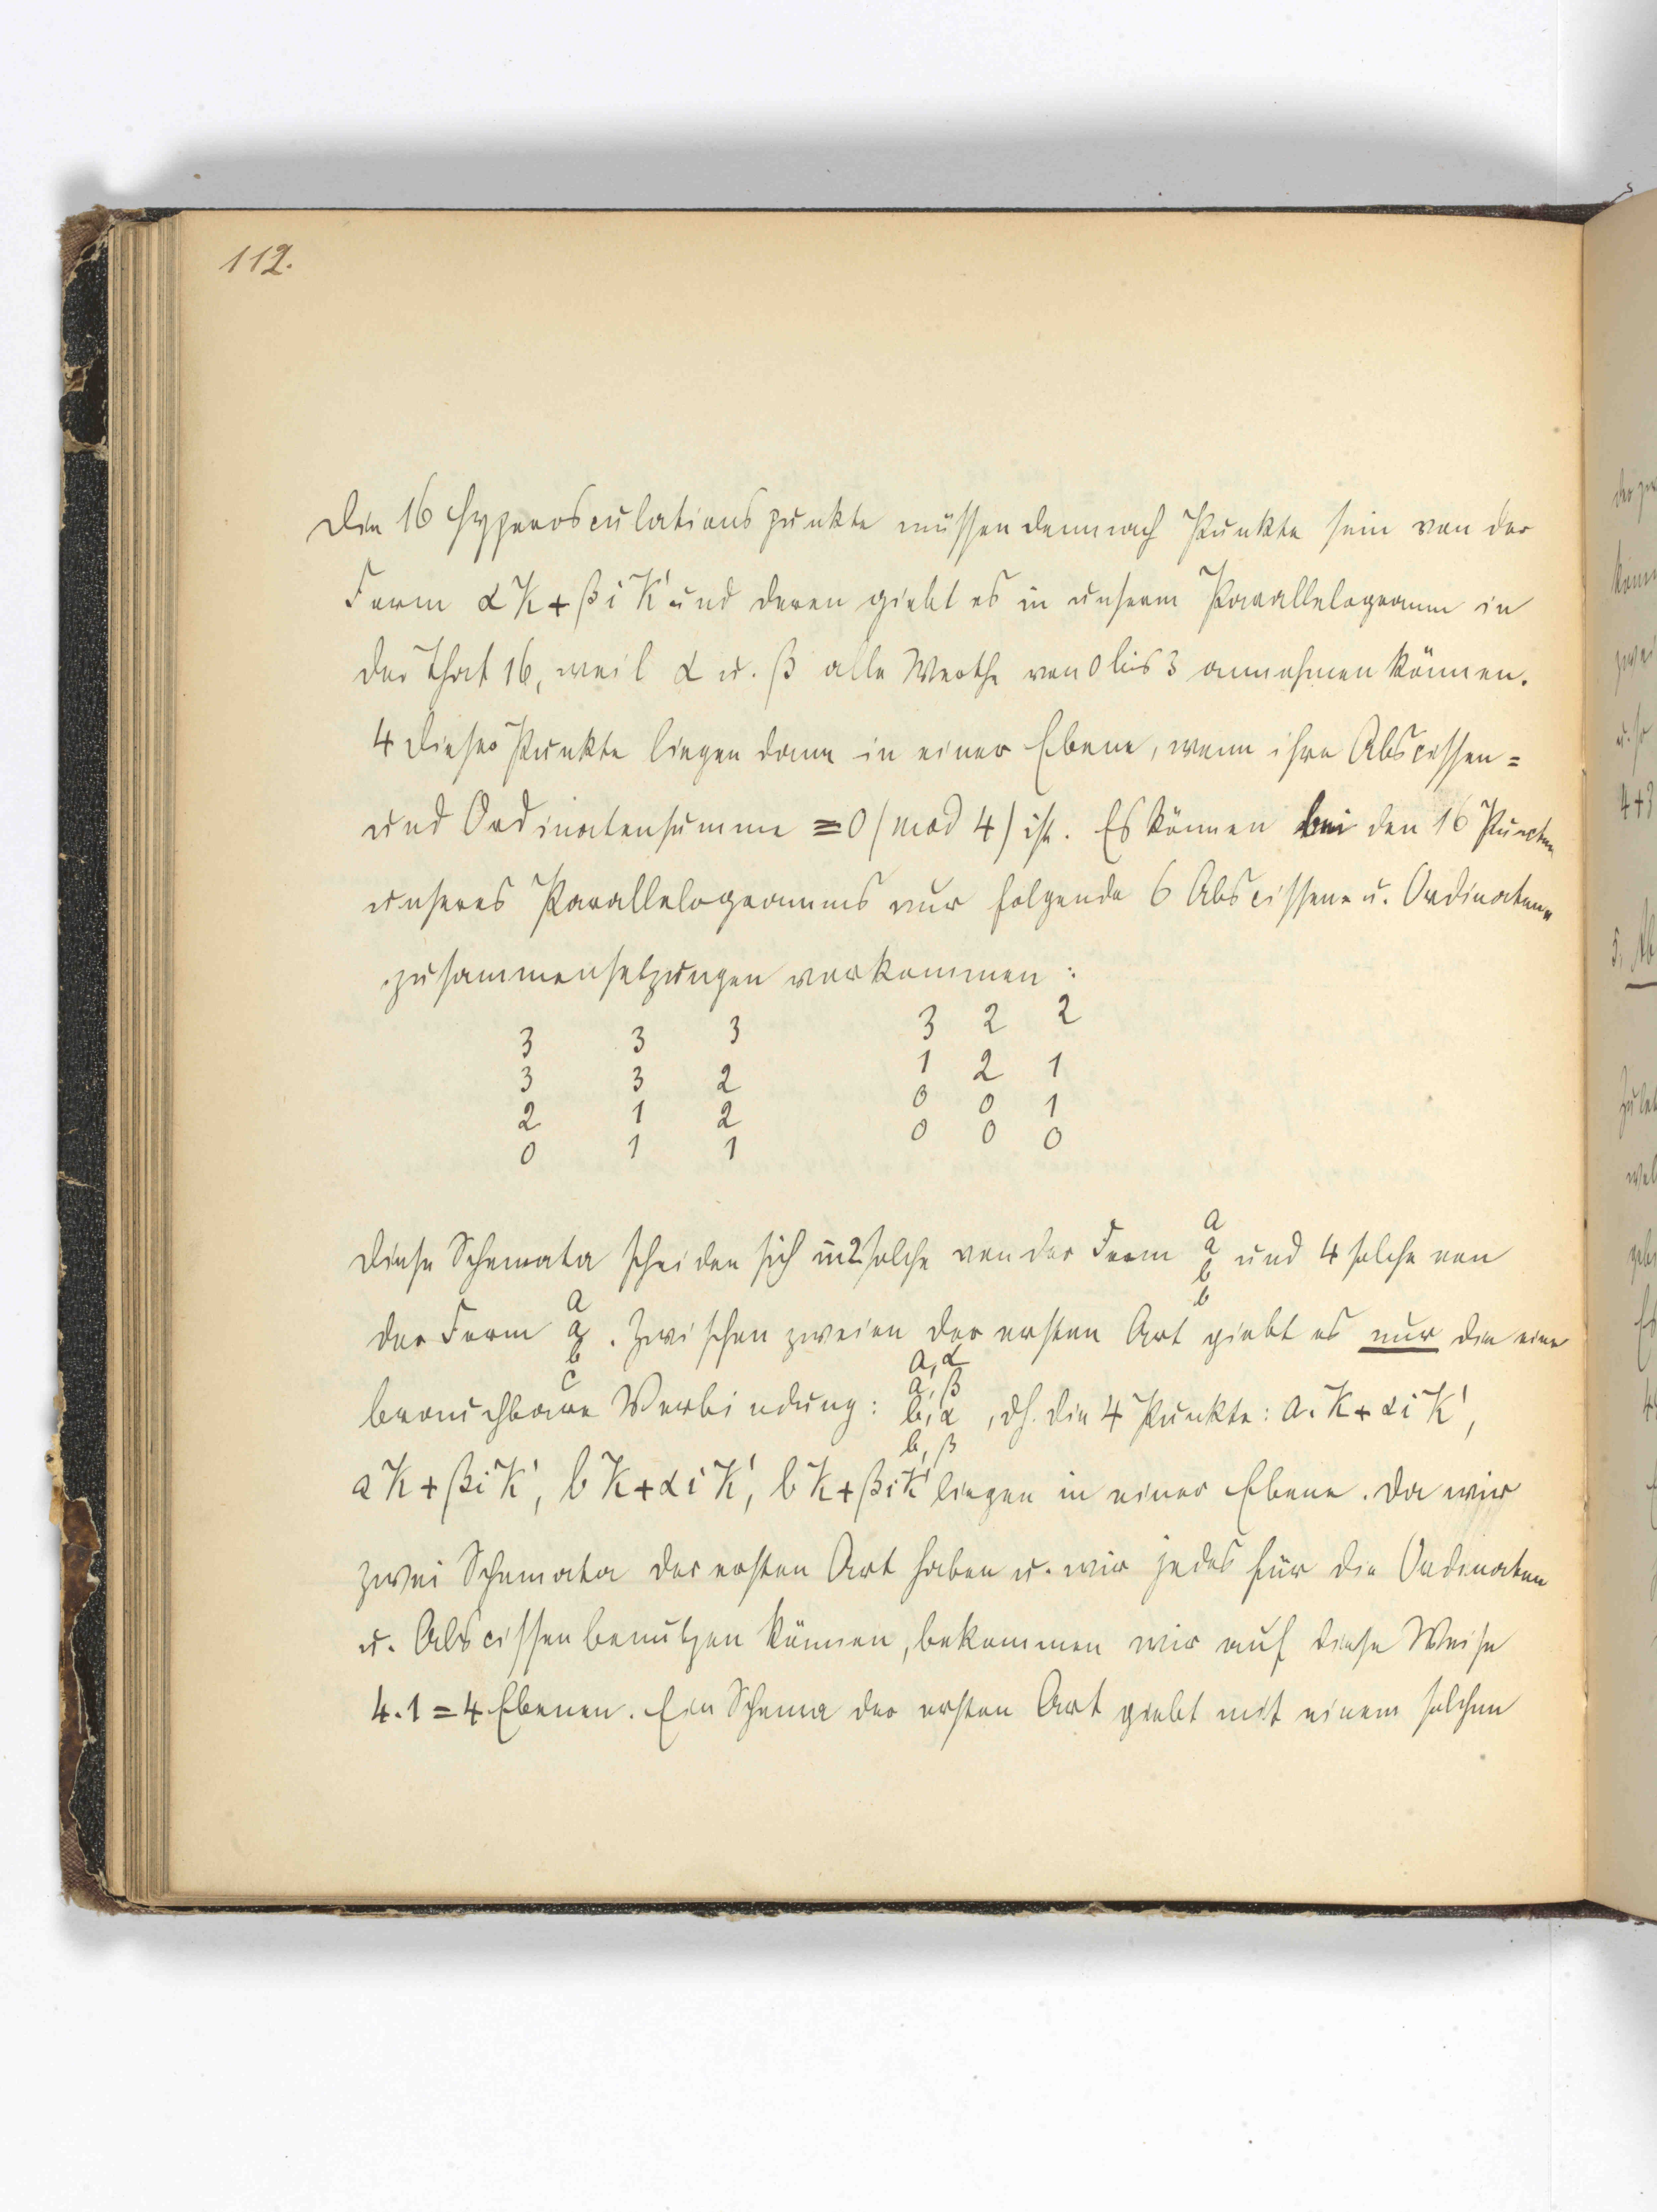 112.
Die 16 Hyperosculationspunkte müssen demnach Punkte sein von der
Form αK + βiK' und deren giebt es in unserm Parallelogramm in
der That 16, weil α u. β alle Werthe von 0 bis 3 annehmen können.
4 dieser Punkte liegen dann in einer Ebene, wenn ihre Abscissen=
und Ordinatensumme ≡ 0 (mod 4) ist. Es können bei den 16 Puncten
unseres Parallelogramms nur folgende 6 Abscissen- u. Ordinaten-
zusammensetzungen vorkommen:
3 3 3 3 2 2
3 3 2 1 2 1
2 1 2 0 0 1
0 1 1 0 0 0
a
Diese Schemata scheiden sich in 2 solche von der Form a und 4 solche von
b
b
a
der Form a. Zwischen zweien der ersten Art giebt es nur die eine
b
c
a, α
a, β
brauchbare Verbindung: b, α, dh. die 4 Punkte: a.K + αiK',
b, β
aK + βiK', bK + αiK', bK + βiK' liegen in einer Ebene. Da wir
zwei Schemata der ersten Art haben u. wir jedes für die Ordinaten
u. Abscissen benutzen können, bekommen wir auf diese Weise
4.1 = 4 Ebenen. Ein Schema der ersten Art giebt mit einem solchen